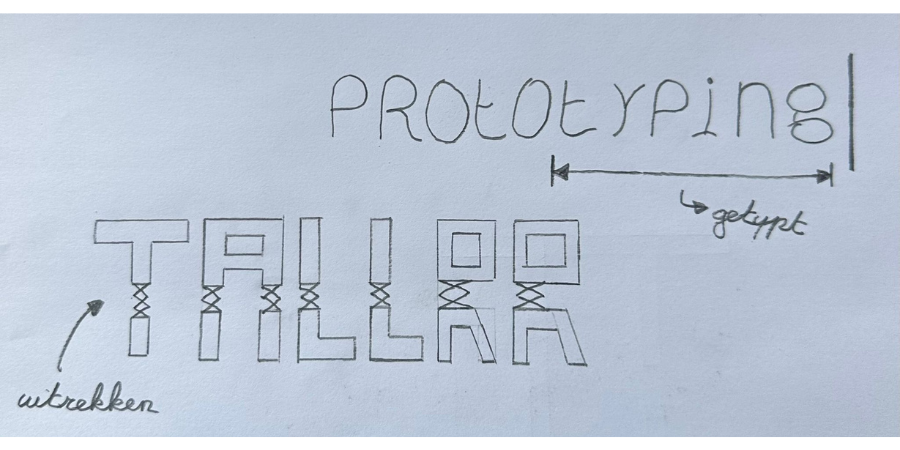 PROtOtYPing
getypt
TALLRR
uitrekken